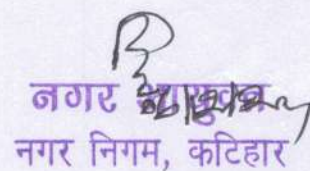 नगर आयुक्त
नगर निगम, कटिहार